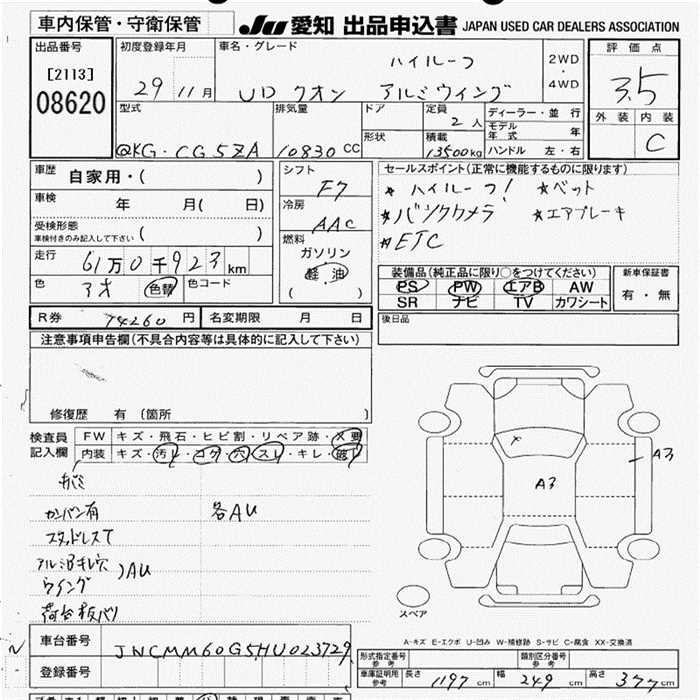 車内保管・守衛保管
JU 愛知 出品申込書 JAPAN USED CAR DEALERS ASSOCIATION
出品番号
[2113]
08620
初度登録年月
29 11 月
車名・グレード
ハイルーフ
UD クオン アルミウイング
2WD
・
4WD
評価点
3.5
外装 内装
C
型式
QKG-CG5ZA
排気量
10830 CC
ドア
形状
定員
2 人
積載
13500 kg
ディーラー・並行
モデル年式 年
ハンドル 左・右
車歴
自家用・( )
車検
年 月( 日)
受検形態
車検付きのみ記入して下さい ( )
走行
61万0千923 km
色
アオ 色替 色コード
シフト
F7
冷房
AAC
燃料
ガソリン
・
軽油
( )
セールスポイント(正常に機能するものに限ります)
★ ハイルーフ! ★ベット
★バックカメラ ★エアブレーキ
★ETC
装備品(純正品に限り○をつけてください)
PS PW エアB AW
SR ナビ TV カワシート
新車保証書
有・無
後日品
R券 74260 円 名変期限 月 日
注意事項申告欄(不具合内容等は具体的に記入して下さい)
修復歴 有 (箇所 )
検査員
記入欄
FW キズ・飛石・ヒビ割・リペア跡・X要
内装 キズ・汚レ・コゲ・穴・スレ・キレ・破レ
カンバン有 各AU
スタッドレスT
アルミBキレ穴
ウイング )AU
荷台板バリ
A3
A3
スペア
A-キズ E-エクボ U-凹み W-補修跡 S-サビ C-腐食 XX-交換済
車台番号
JNCMM60G5HU023729
登録番号
形式指定番号 参考
類別区分番号 参考
車庫証明用 参考
長さ 1197 cm 幅 249 cm 高さ 377 cm